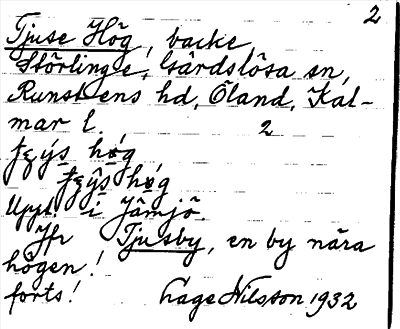 2
Tjuse Hög, backe
Störlinge, Gärdslösa sn,
Runstens hd, Öland, Kal-
mar l. 2
hög
hög
Uppt. i Jämjö.
Jfr Tjusby, en by nära
högen!
forts! Lage Nilsson 1932